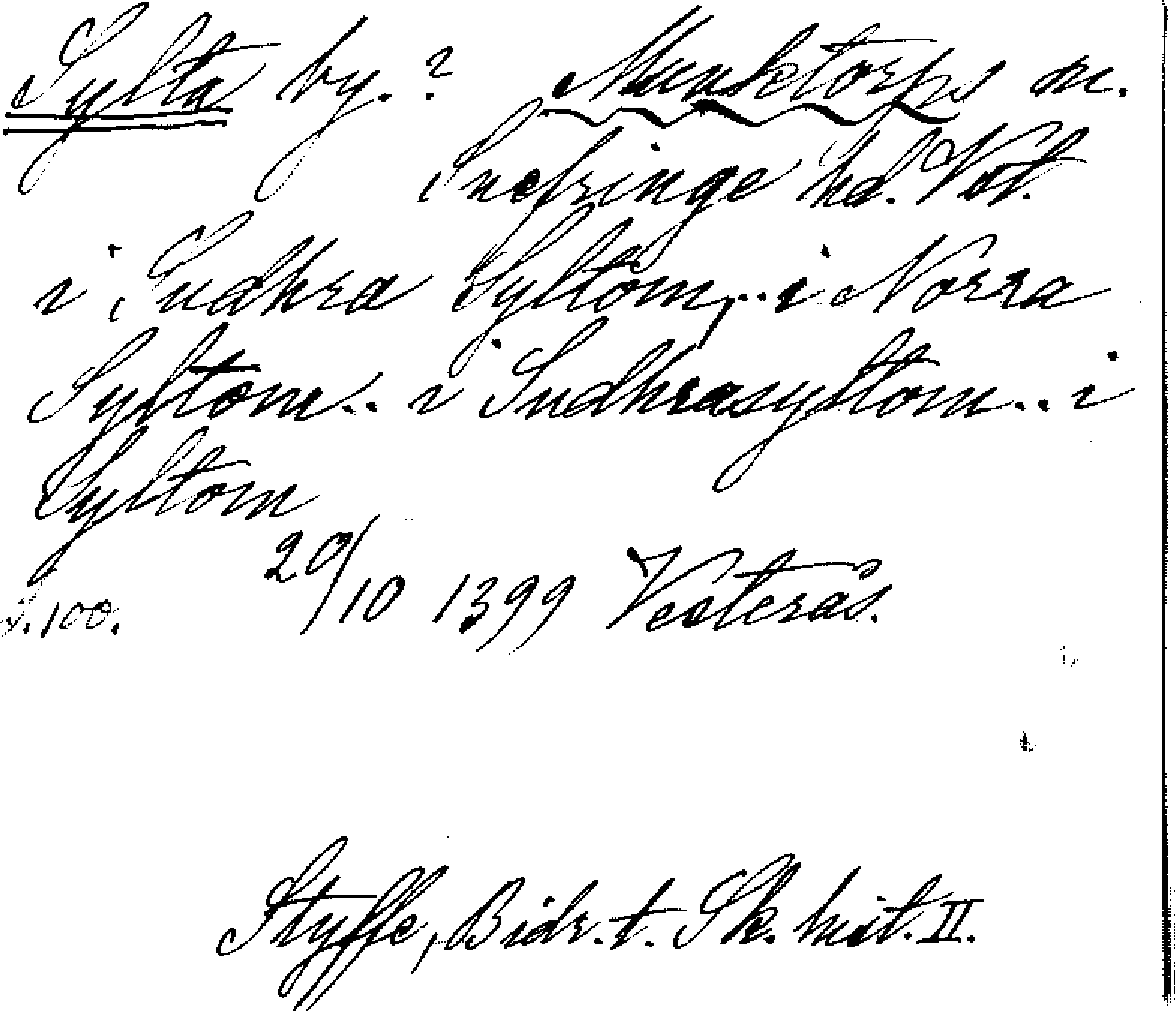 Sylta by. ? Munktorps sn.
Snefringe hd. Vstl.
i Sudhra Syltom, .. i Norra
Syltom .. i Sudhrasyltom .. i
Syltom
20/10 1399 Vesterås.
s. 100.
Styffe, Bidr. t. Sk. hist. II.